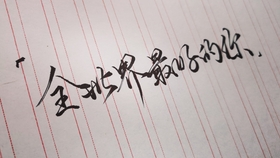 「全世界最好的你、